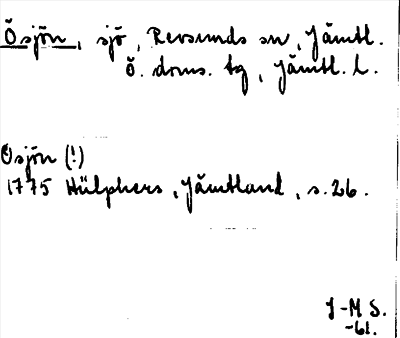 Ösjön, sjö, Revsunds sn, Jämtl.
Ö. doms. tg, Jämtl. l.
Osjön (!)
1775 Hülphers, Jämtland, s. 26.
J-M S.
-61.